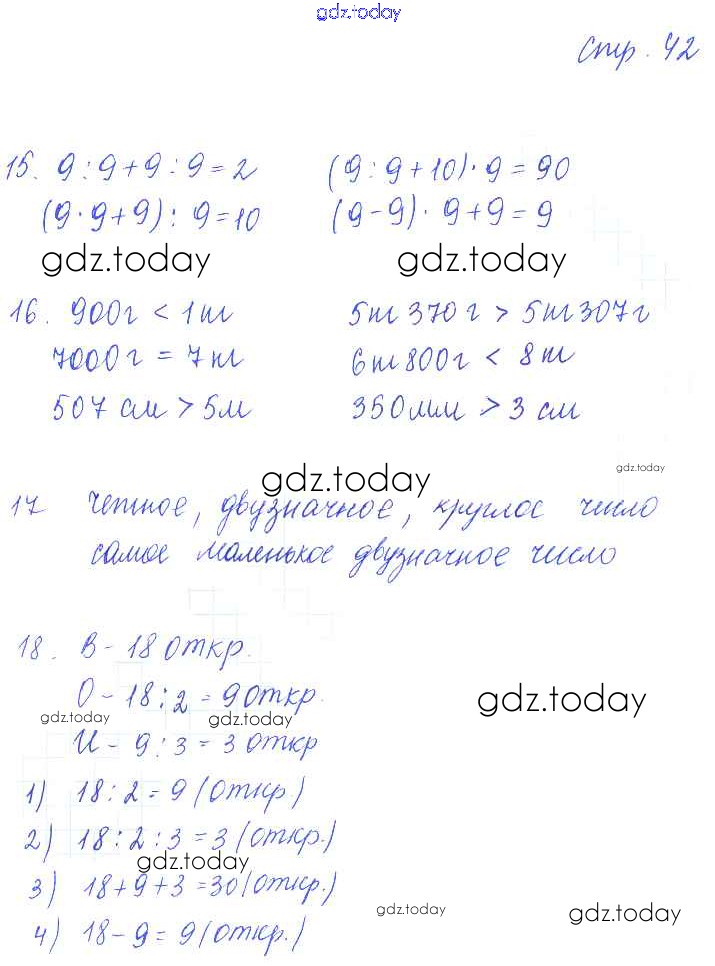 gdz.today
стр. 42
15. 9 : 9 + 9 : 9 = 2 (9 : 9 + 10) · 9 = 90
(9 · 9 + 9) : 9 = 10 (9 - 9) · 9 + 9 = 9
gdz.today gdz.today
16. 900г < 1т 5т 370 г > 5т 307 г
7000 г = 7 т 6 т 800 г < 8 т
507 см > 5м 350мм > 3 см
gdz.today
gdz.today
17 Четное, двузначное, круглое число
самое маленькое двузначное число
18. В - 18 откр.
О - 18 : 2 = 9 откр.
gdz.today
gdz.today gdz.today
И - 9 : 3 = 3 откр
1) 18 : 2 = 9 (откр.)
2) 18 : 2 : 3 = 3 (откр.)
gdz.today
3) 18 + 9 + 3 = 30 (откр.)
gdz.today gdz.today
4) 18 - 9 = 9 (откр.)